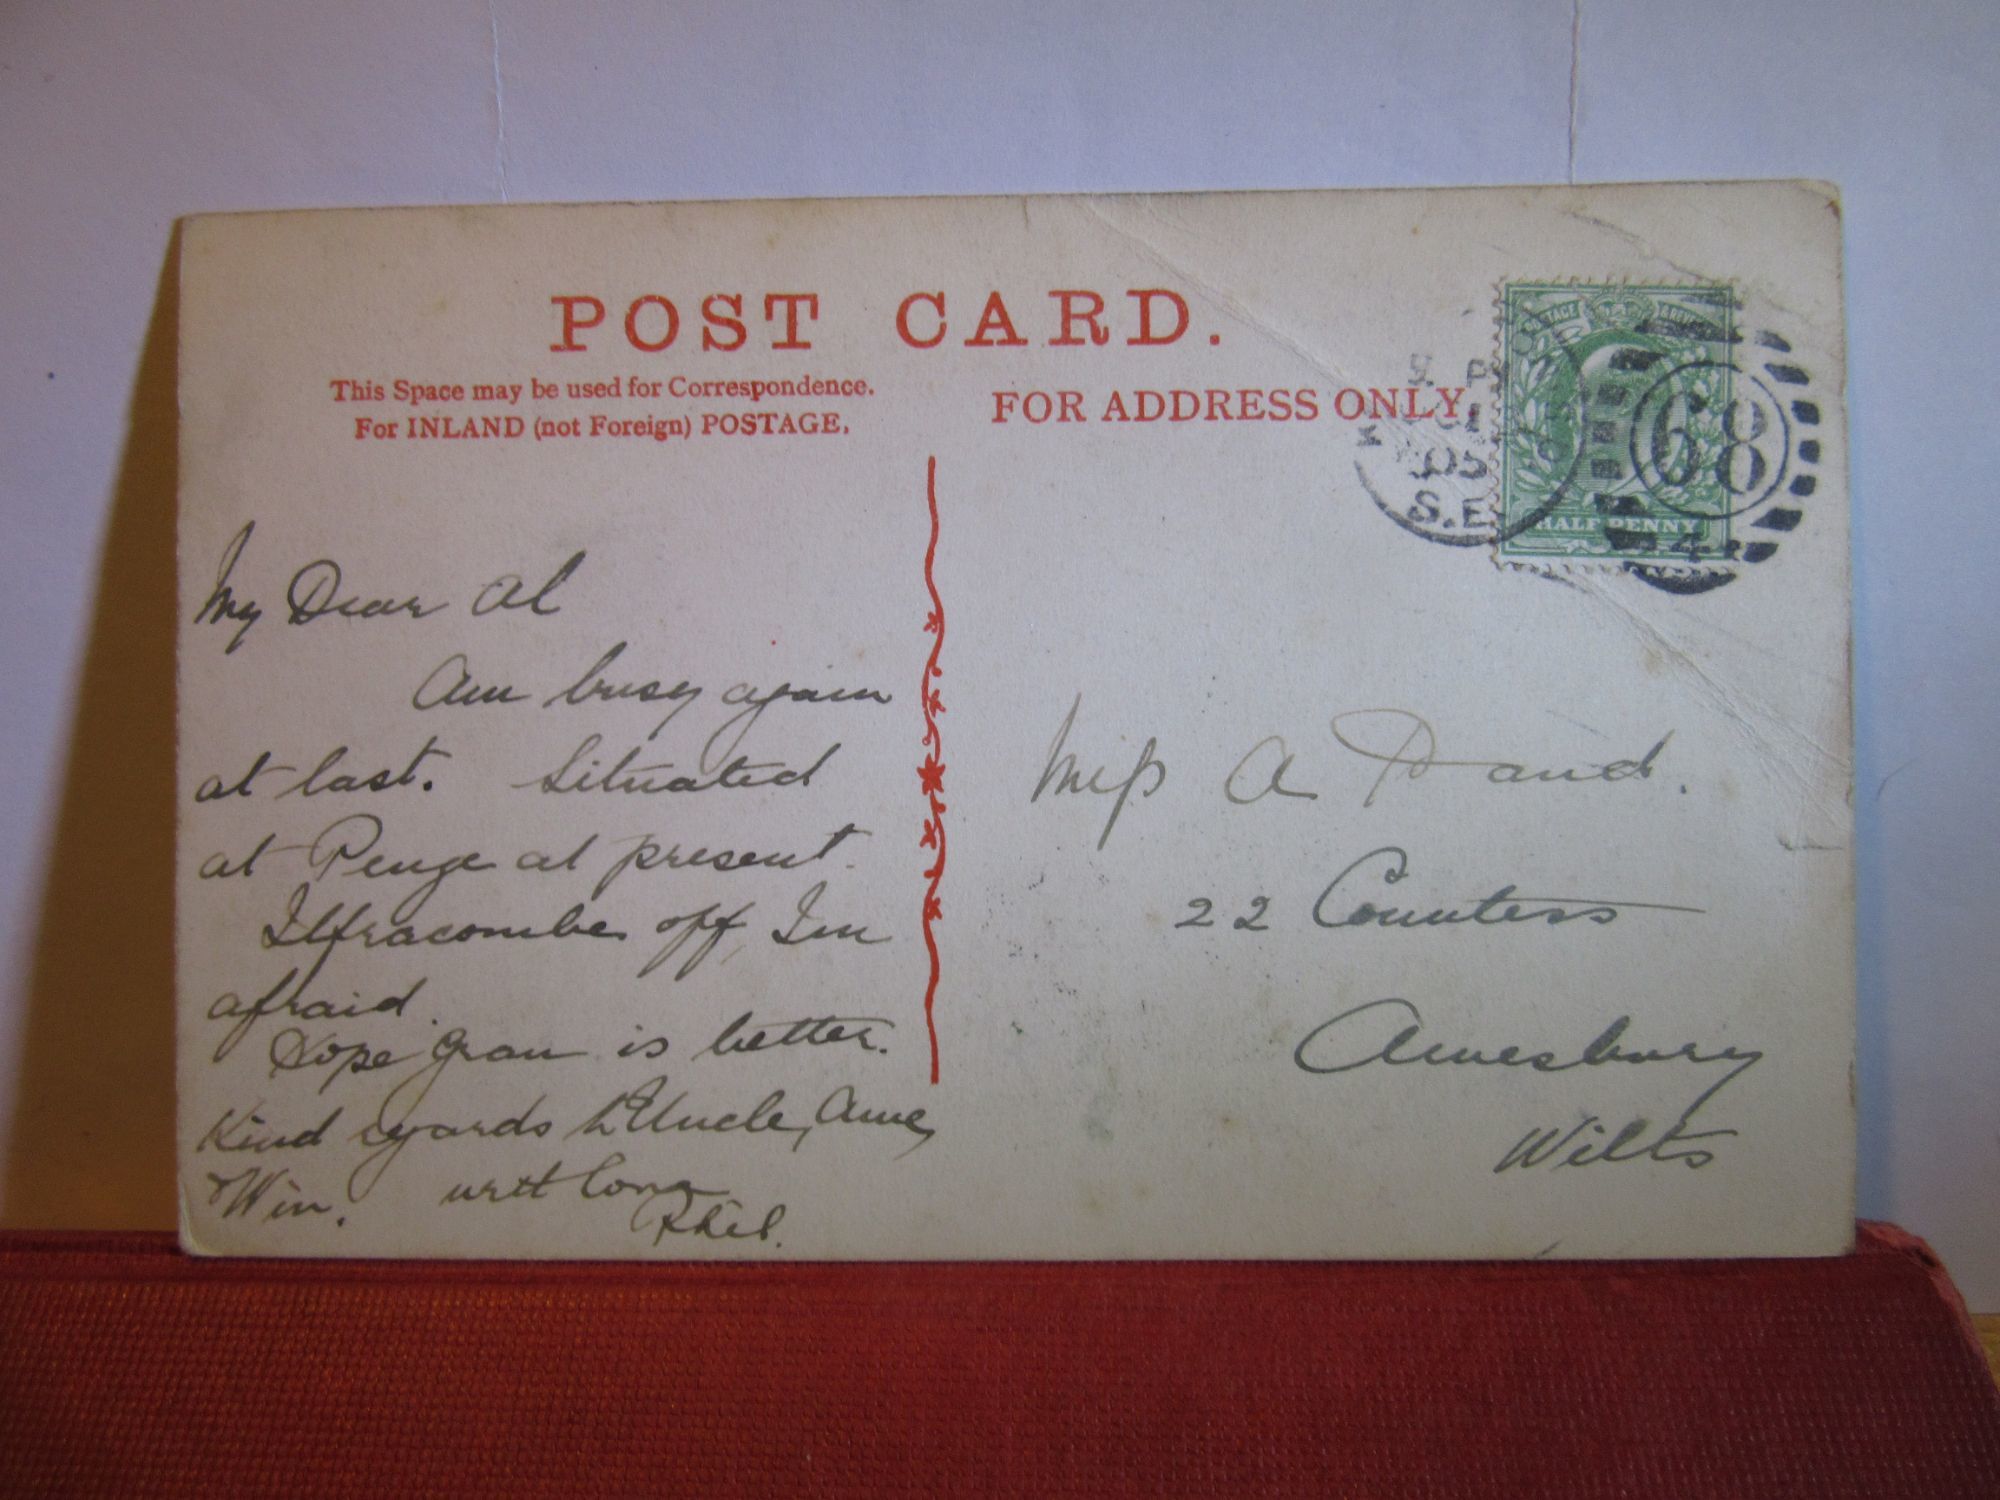 POST CARD.
This Space may be used for Correspondence.
For INLAND (not Foreign) POSTAGE.
FOR ADDRESS ONLY
POSTAGE & REVE
HALF PENNY
05
S.E
68
4
My Dear Al
Am busy again
at last. Situated
at Penge at present.
Ilfracombe off, Im
afraid.
Hope Gran is better.
Kind regards to Uncle,
& Win. Phil.
Miss A
22 Countess
Amesbury
Wilts